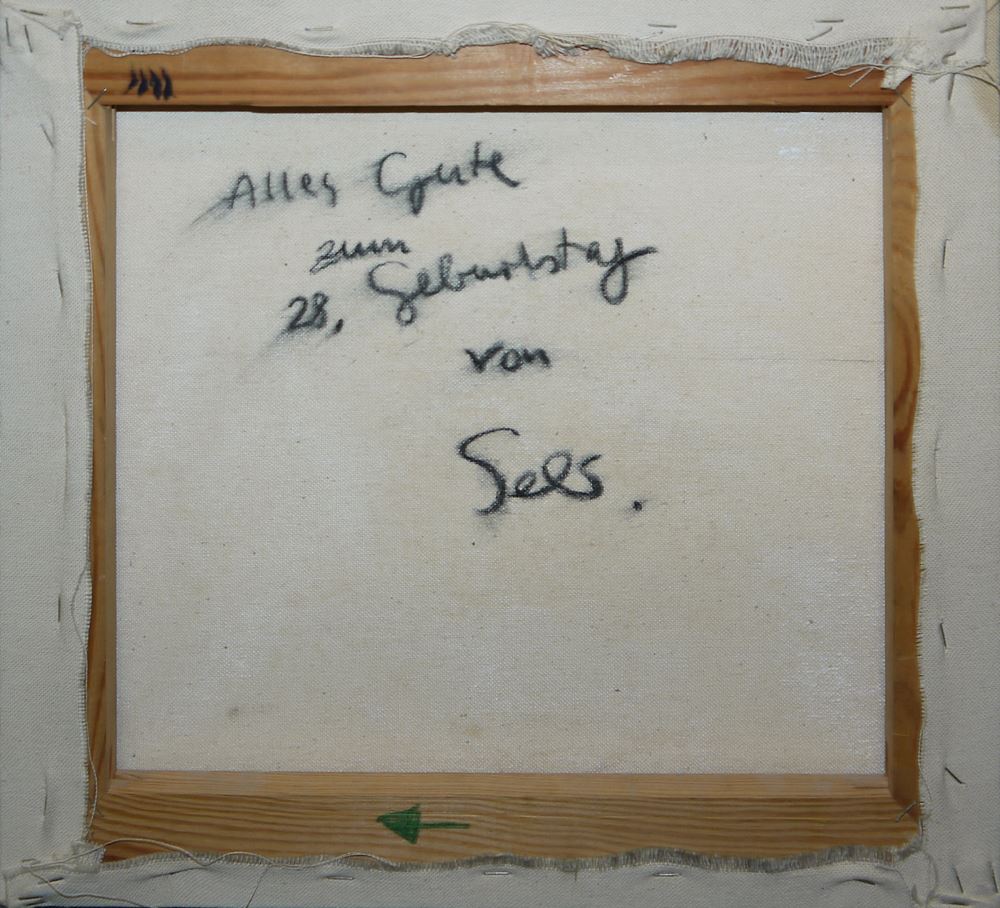 Alles Gute
zum
28. Geburtstag
von
Sels.